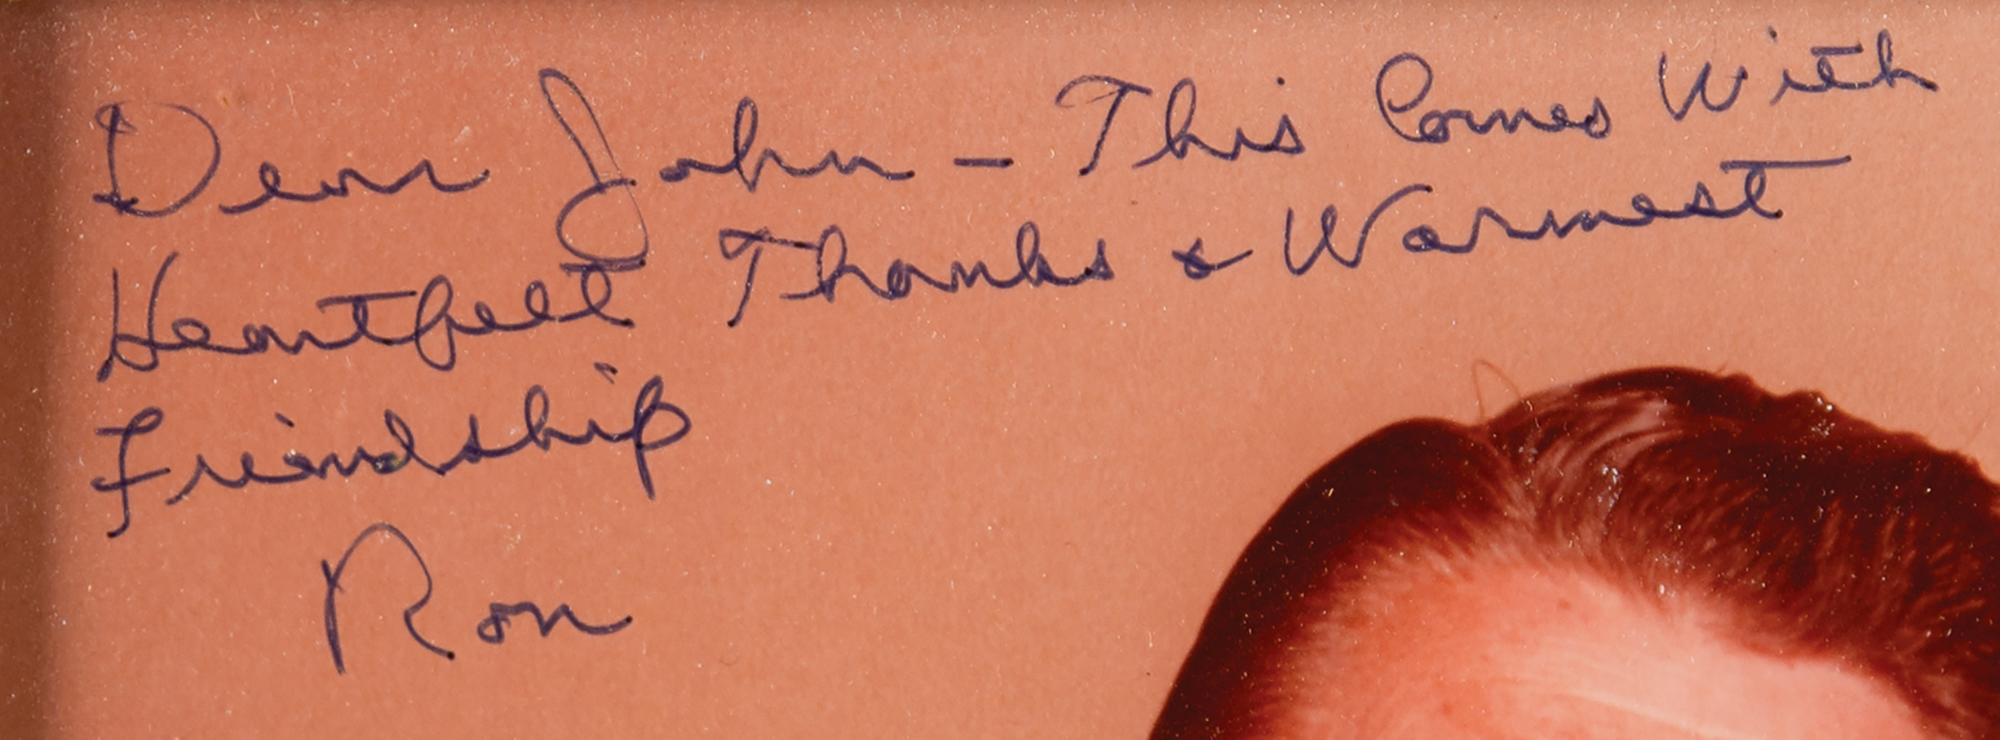 Dear John – This Comes With
Heartfelt Thanks & Warmest
Friendship
Ron